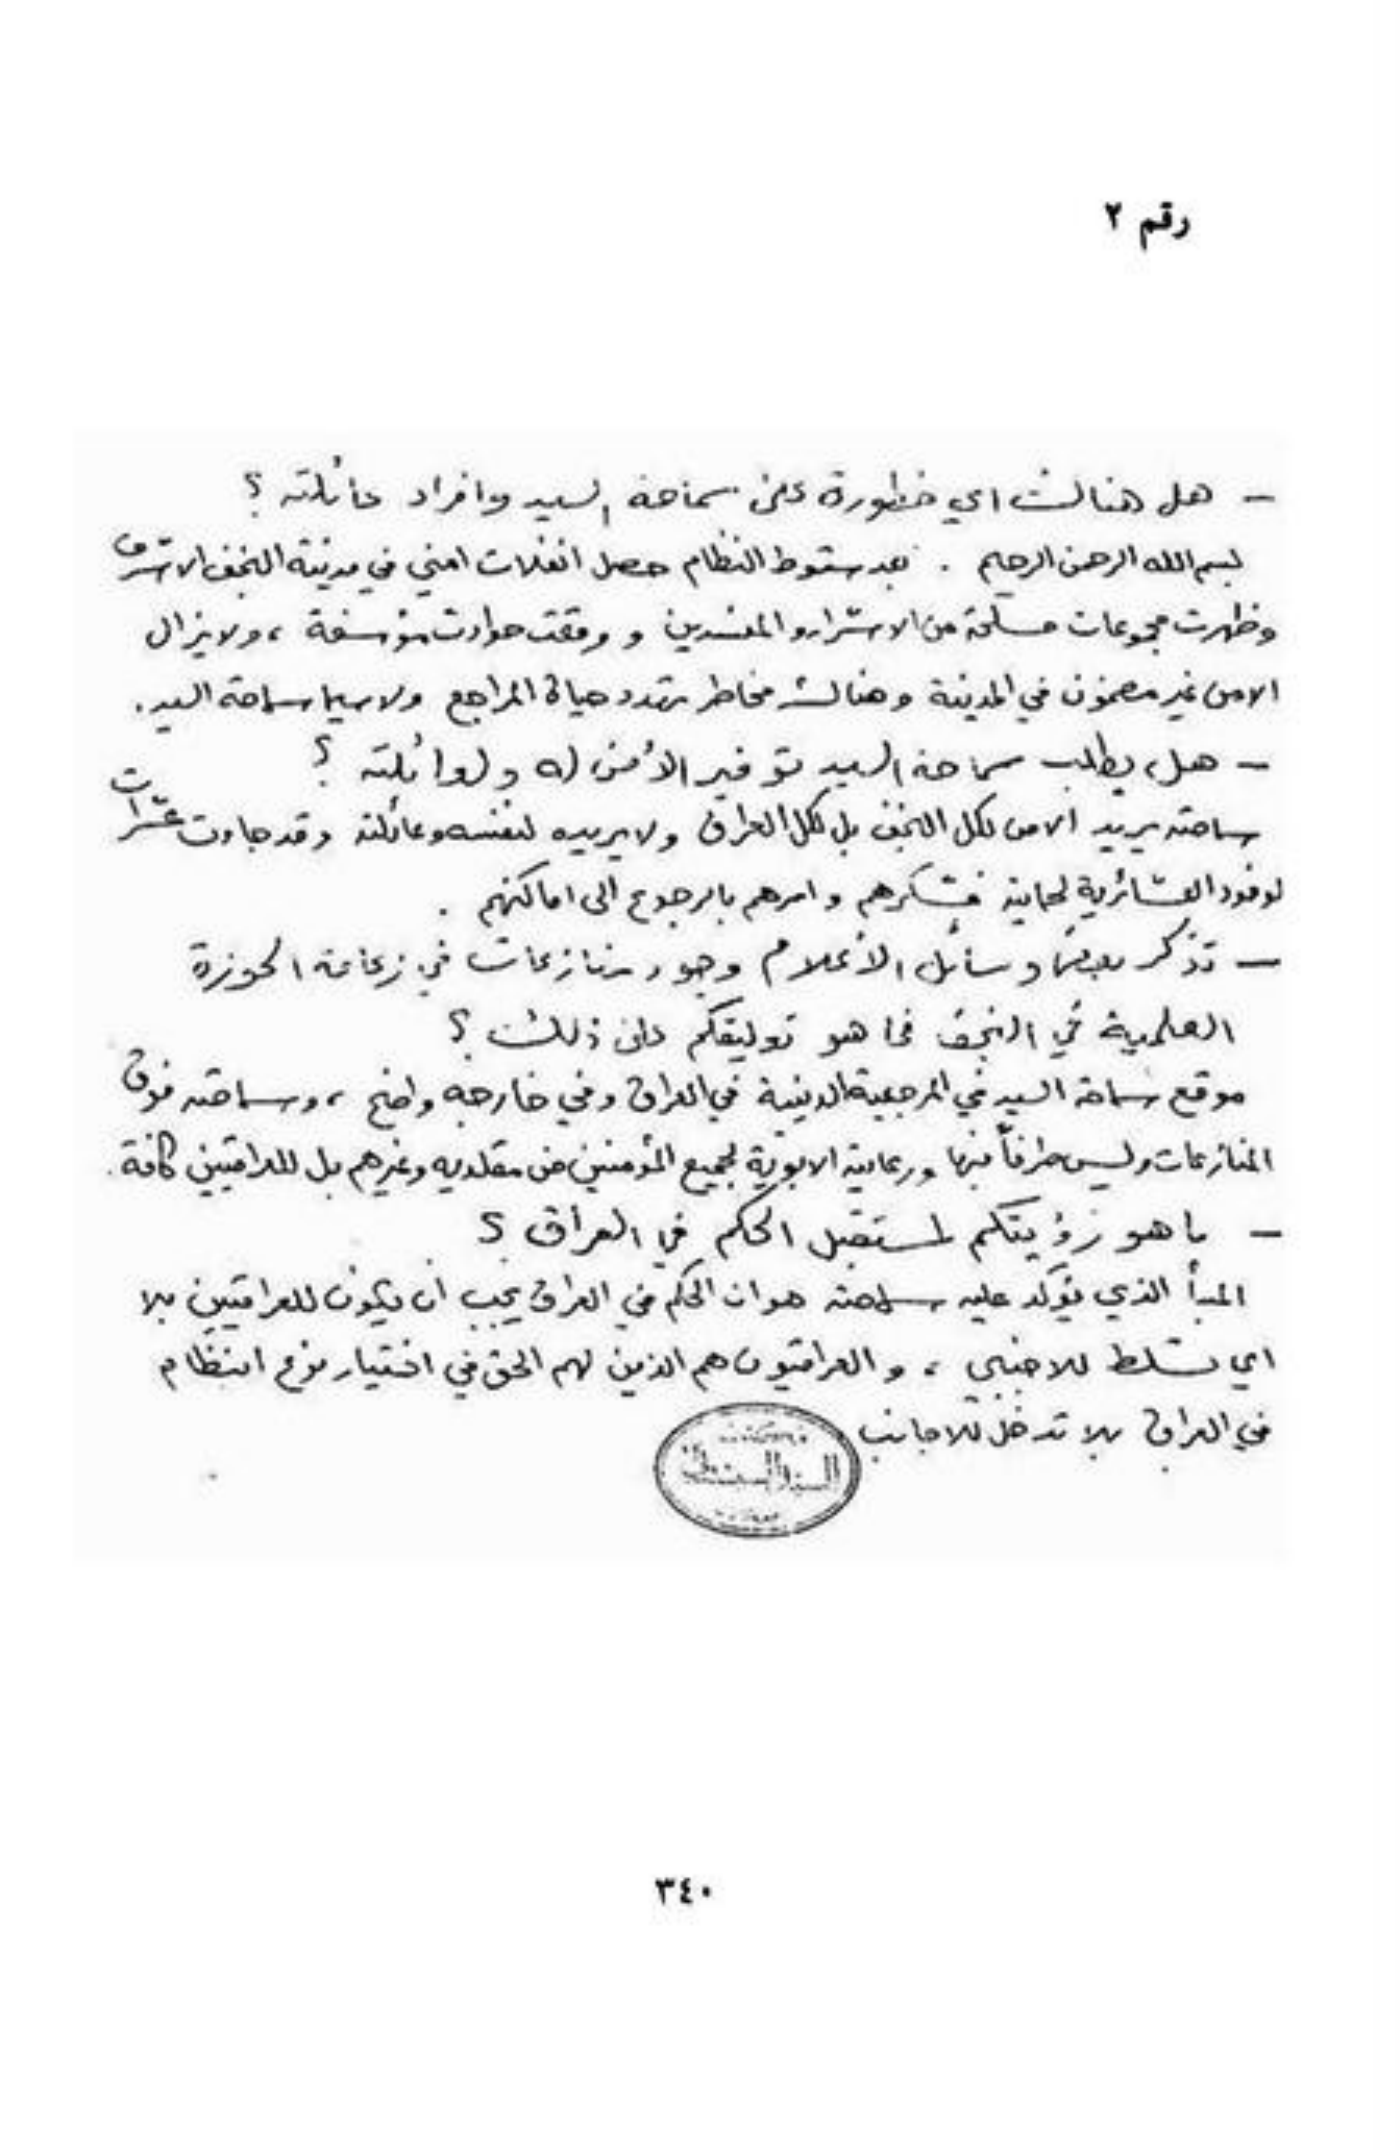 رقم ٢
– هل هنالك اي خطورة على سماحة السيد وافراد عائلته ؟
بسم الله الرحمن الرحيم . بعد سقوط النظام حصل انفلات امني في مدينة النجف الاشرف
وظهرت مجموعات مسلحة من الاشرار و المفسدين و وقعت حوادث مؤسفة ، ولا يزال
الامن غير مضمون في المدينة وهنالك مخاطر تهدد حياة المراجع ولاسيما سماحة السيد .
– هل يطلب سماحة السيد توفير الأمن له و لعائلته ؟
سماحته يريد الامن لكل النجف بل لكل العراق ولا يريده لنفسه وعائلته وقد جاءت عشرات
لوفود العشائرية لحمايته فشكرهم وامرهم بالرجوع الى اماكنهم .
– تذكر بعض وسائل الأعلام وجود منازعات في زعامة الحوزة
العلمية في النجف فما هو تعليقكم على ذلك ؟
موقع سماحة السيد في المرجعية الدينية في العراق وفي خارجه واضح ، وسماحته فوق
المنازعات وليس طرفاً فيها ورعايته الابوية لجميع المؤمنين من مقلديه وغيرهم بل للعراقيين كافة .
– ما هو رؤيتكم لمستقبل الحكم في العراق ؟
المبدأ الذي يؤكد عليه سماحته هو ان الحكم في العراق يجب ان يكون للعراقيين بلا
اي تسلط للاجنبي ، و العراقيون هم الذين لهم الحق في اختيار نوع النظام
في العراق بلا تدخل للاجانب
السيد السيستاني
٣٤٠